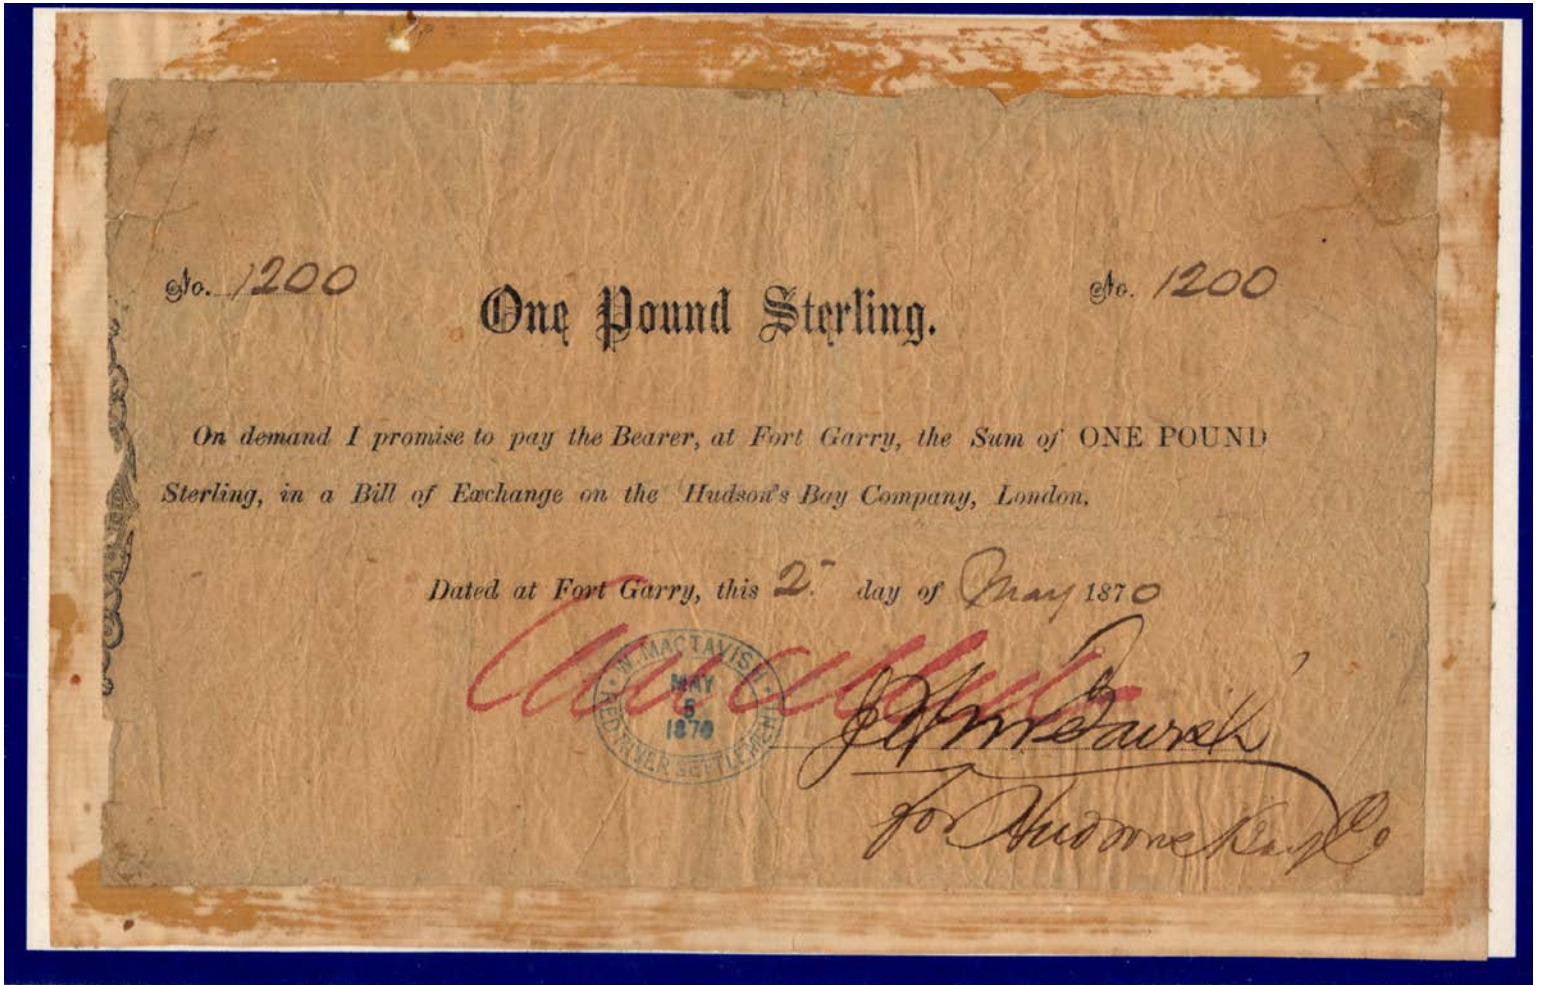 No. 1200
No. 1200
One Pound Sterling.
On demand I promise to pay the Bearer, at Fort Garry, the Sum of ONE POUND
Sterling, in a Bill of Exchange on the Hudson's Bay Company, London.
Dated at Fort Garry, this 2. day of May 1870
Cancelled
W. MACTAVISH
MAY
5
1870
RED RIVER SETTLEMENT
J H McTavish
for Hudsons Bay Co